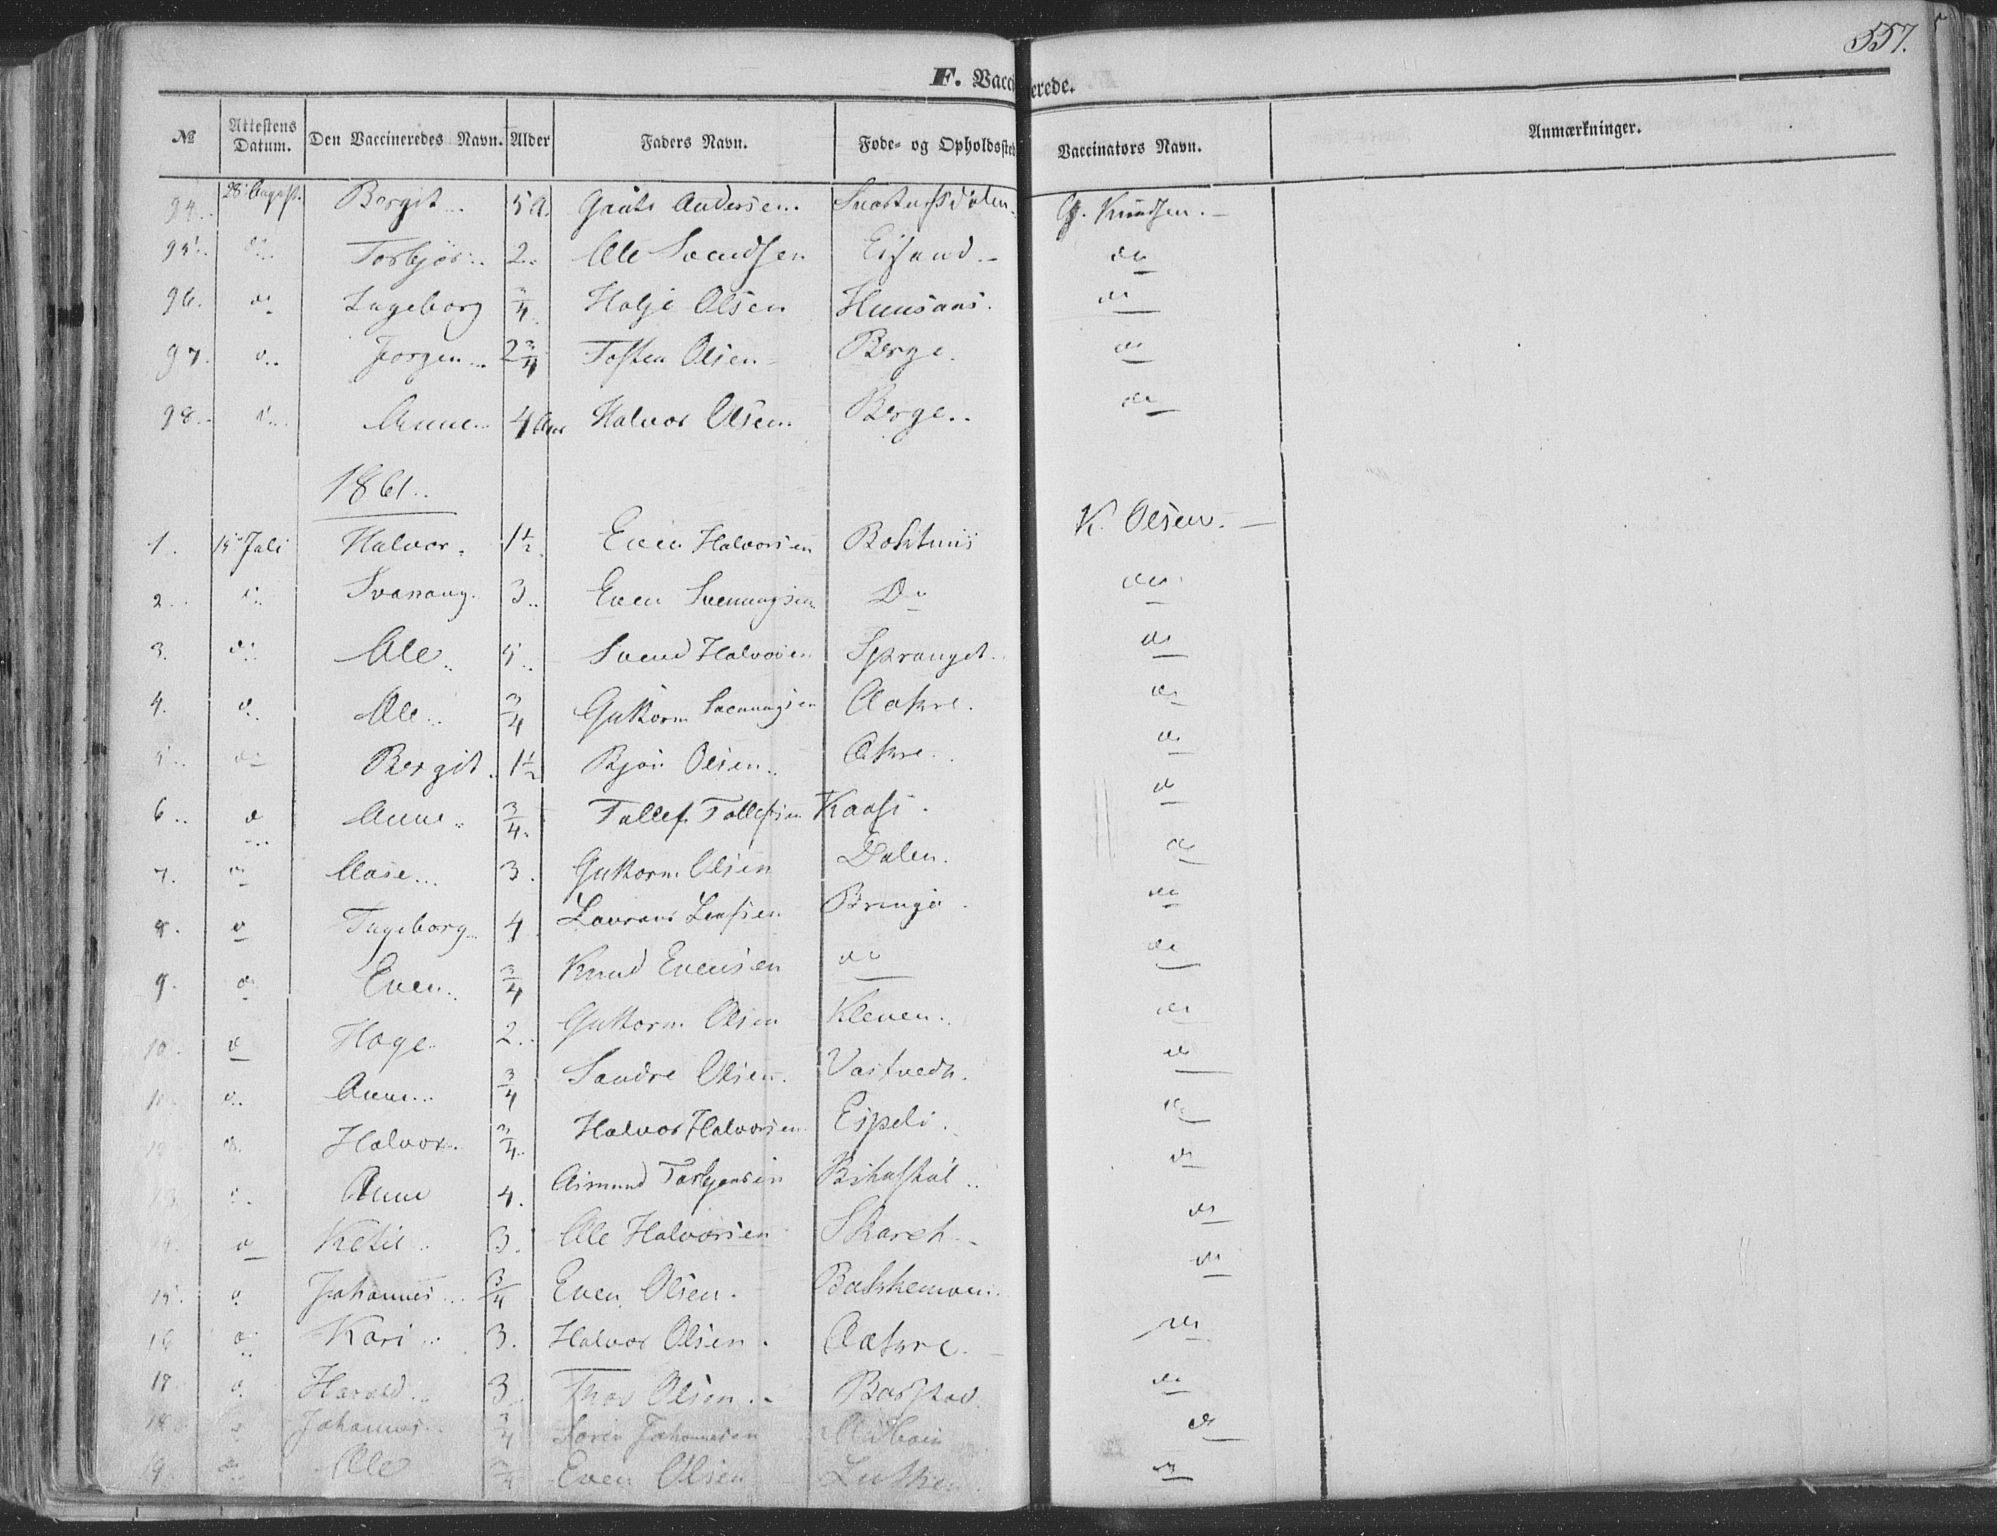 557.
F. Vaccinerede.
№ Attestens Datum. Den Vaccineredes Navn. Alder Faders Navn. Føde- og Opholdssted Vaccinators Navn. Anmærkninger.
94. 28 August. Bergit 5 A. Gaute Andersen. G. Knudsen.
95. do Torbjør 2 Ole Svendsen Eisand do
96. do Ingeborg 3/4 Halje Olsen Huusaas. do
97. do Jorgen 2 3/4 Tosten Olsen Berge. do
98. do Anne 4 Aar Halvor Olsen. Berge. do
1861.
1. 15 Juli Halvor 1 1/2 Even Halvorsen K. Olsen.
2. do Svanaug. 3 Even Svenungsen Do do
3. do Ole 5 Svend Halvorsen Spranget. do
4. do Ole 3/4 Guttorm Svenungsen Aakre. do
5. do Bergit. 1 1/2 Bjørn Olsen Akre. do
6. do Anne 3/4 Tallef Tallefsen Kaasi. do
7. do Aase 3. Guttorm Olsen Dalen. do
8. do Ingeborg 4 Laurans Bringe. do
9. do Even 3/4 Knud Evensen do do
10. do Hage 2. Guttorm Olsen Kleven. do
11. do Anne 3/4 Sandre Olsen Vastvedt. do
12. do Halvor 3/4 Halvor Halvorsen Espeli. do
13. do Anne 4. Asmund Torbjørnsen do
14. do Ketil 3. Ole Halvorsen Skareh do
15. do Johannes 3/4 Even Olsen. Bakkemoen. do
16. do Kari 3. Halvor Olsen. Aakre. do
17. do Harald 3 Thor Olsen. Baastad do
18. do Johannes 3/4 Soren Johannesen do
19. do Ole 3/4 Even Olsen do